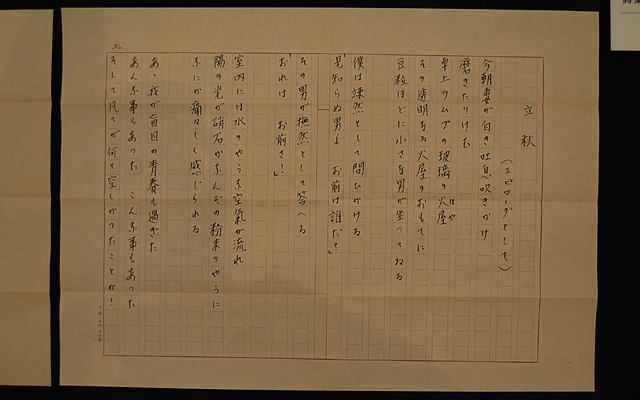 立秋
（エピローグとして）
今朝妻が白き吐息吹きかけ
磨きたりけむ
卓上ラムプの玻璃の火屋
ほや
その透明なる火屋のおもてに
豆粒ほどに小さな男が坐つてゐる
僕は竦然として問ひかける
「見知らぬ男よ お前は誰だ？」
その男が憮然として答へる
「おれは お前さ！」
室内には水のやうな空氣が流れ
陽の光が硝石かなんぞの粉末のやうに
なにか痛々しく感じられる
あゝ我が盲目の青春も過ぎた
あんな事もあつた こんな事もあつた
そして凡てが何と空しかつたことか！
No.